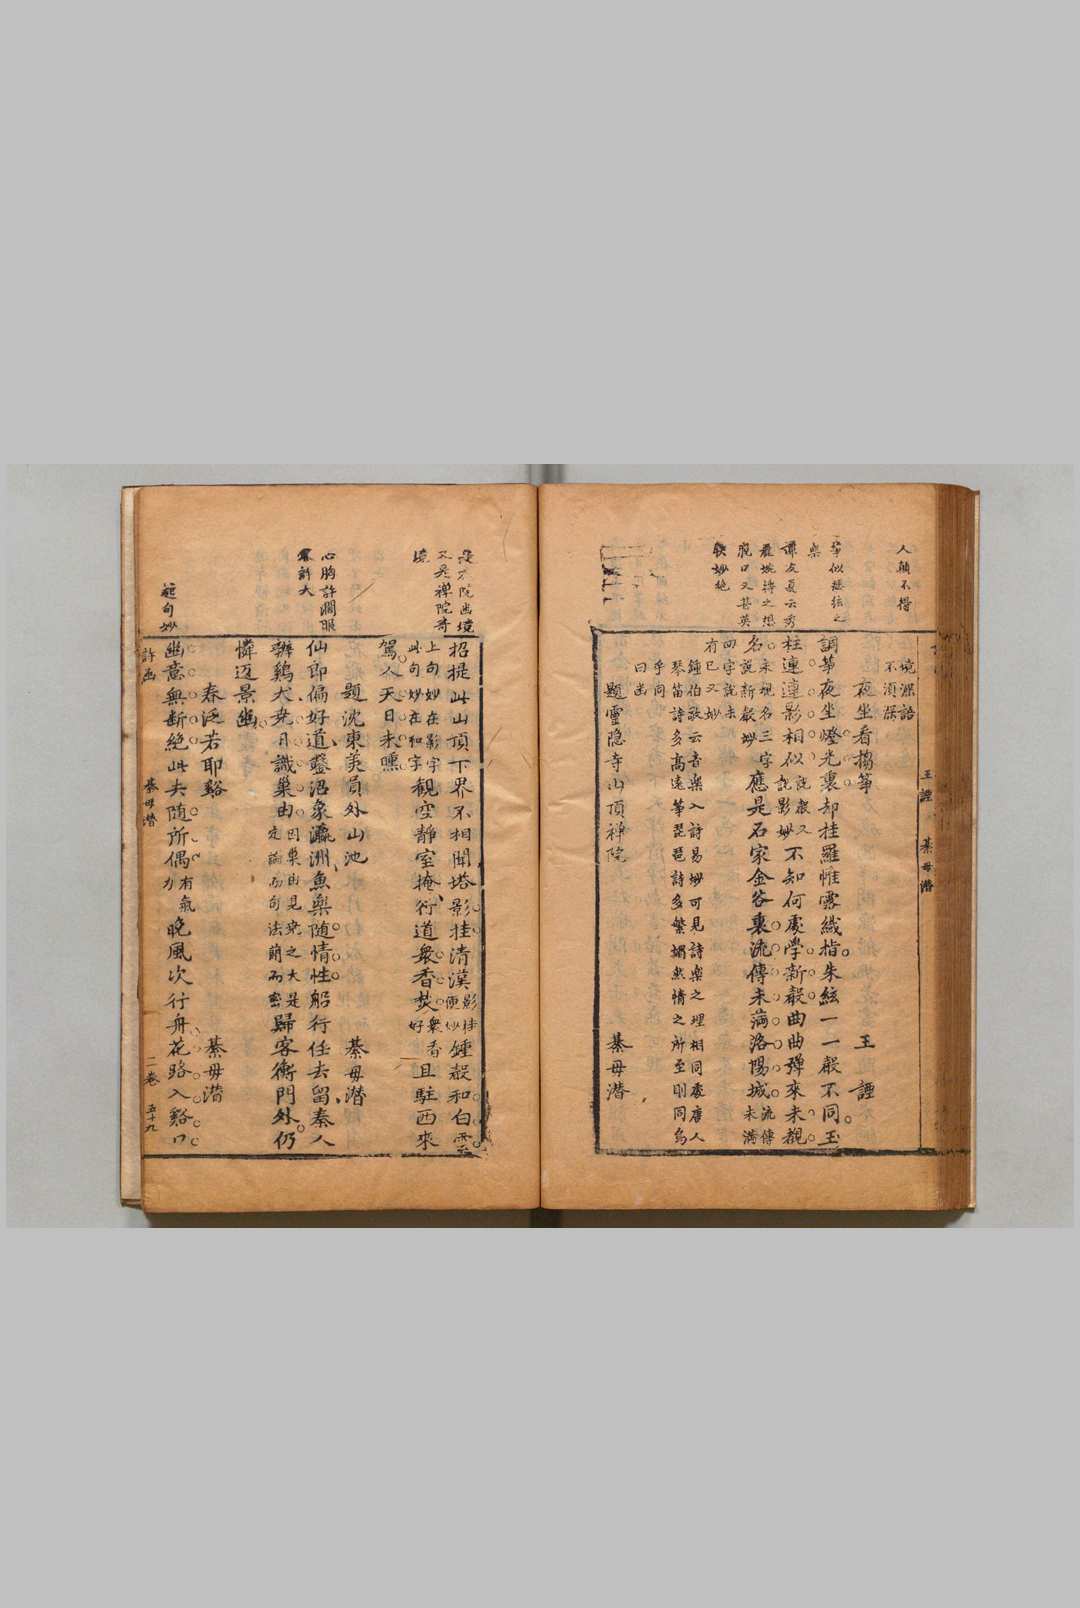 人頗不得
境深語
不須深
王諲 綦毋潛
夜坐看搊箏 王諲
調箏夜坐燈光裏却挂羅帷露纖指朱絃一一聲不同玉
柱連連影相似説聲又説影妙不知何處學新聲曲曲彈來未覩
名説新聲妙 應是石家金谷裏流傳未滿洛陽城流傳未滿
四字説未
有已又妙
鍾伯敬云音樂入詩易妙可見詩樂之理相同處唐人
琴笛詩多高遠箏琵琶詩多繁媚然情之所至則同為
乎同
曰幽
譚友夏云秀
脫口又甚英
軼妙絶
題靈隱寺山頂禪院 綦毋潛
院幽境
又是禪院奇
境
招提此山頂下界不相聞塔影挂清漢影挂便妙鍾聲和白雲
上句妙在影字此句妙在和字觀空靜室掩行道衆香焚衆香好且駐西來
駕人天日未曛
題沈東美員外山池 綦毋潛
心胸許濶眼
界許大
仙郎偏好道鑿沼象瀛洲魚樂隨情性船行任去留秦人
辨雞犬堯日識巢由因巢由見堯之大是定論而句法簡而密歸客衡門外仍
憐返景幽
春泛若耶谿 綦毋潛
起句妙
幽意無斷絶此去隨所偶有氣力晚風次行舟花路入谿口
詩函 綦毋潛 二卷 五十九